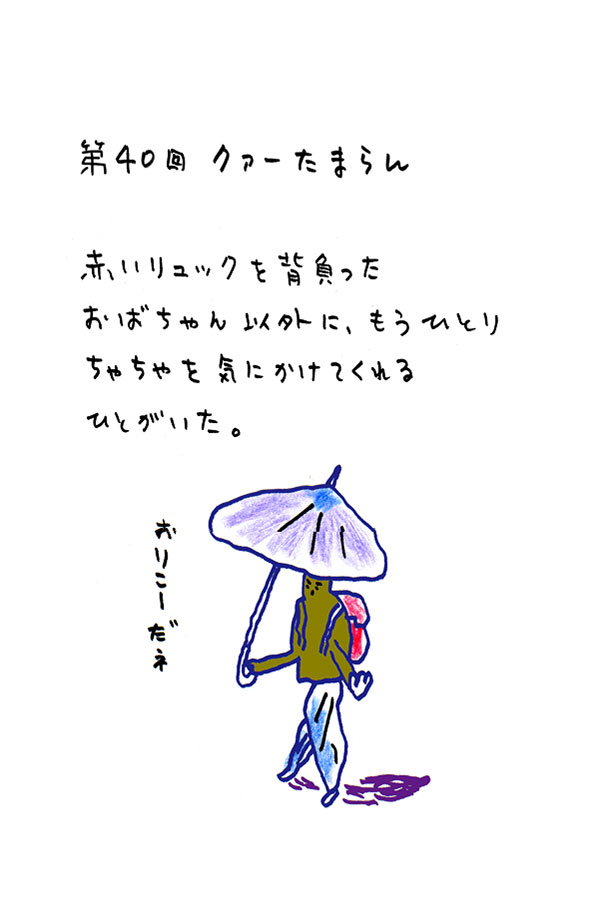 第40回 クァーたまらん
赤いリュックを背負った
おばちゃん以外に、もうひとり
ちゃちゃを気にかけてくれる
ひとがいた。
おりこーだネ